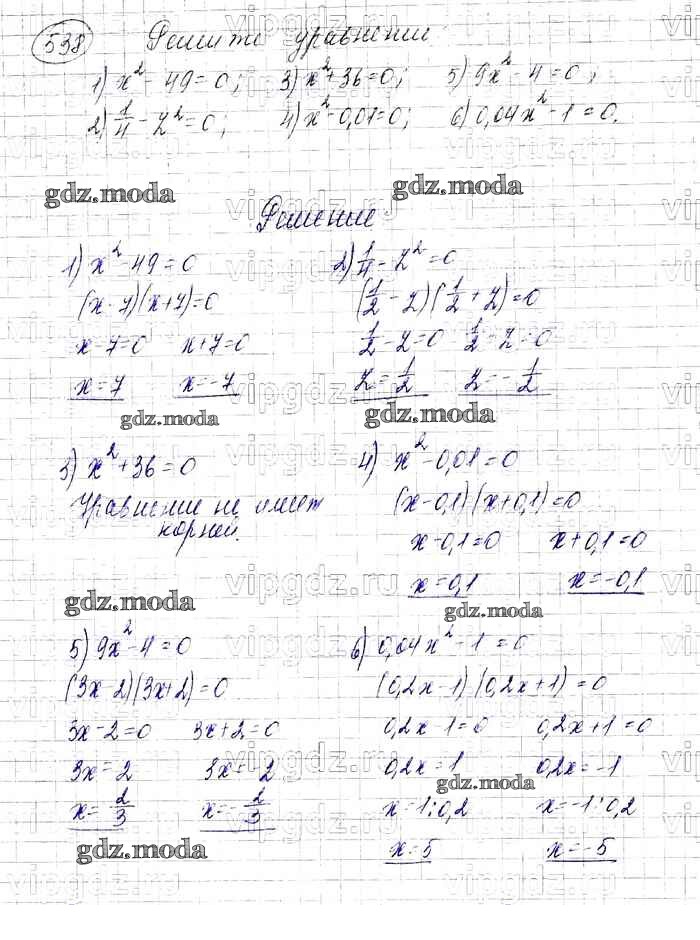 538 Решите уравнение
1) x² - 49 = 0; 3) x² + 36 = 0; 5) 9x² - 4 = 0;
2) 1/4 - z² = 0; 4) x² - 0,01 = 0; 6) 0,04x² - 1 = 0.
gdz.moda gdz.moda
Решение
1) x² - 49 = 0 2) 1/4 - z² = 0
(x - 7)(x + 7) = 0 (1/2 - z)(1/2 + z) = 0
x - 7 = 0 x + 7 = 0 1/2 - z = 0 1/2 - z = 0
x = 7 x = -7 z = 1/2 z = -1/2
gdz.moda gdz.moda
3) x² + 36 = 0 4) x² - 0,01 = 0
Уравнение не имеет (x - 0,1)(x + 0,1) = 0
корней. x - 0,1 = 0 x + 0,1 = 0
x = 0,1 x = -0,1
gdz.moda gdz.moda
5) 9x² - 4 = 0 6) 0,04x² - 1 = 0
(3x - 2)(3x + 2) = 0 (0,2x - 1)(0,2x + 1) = 0
3x - 2 = 0 3x + 2 = 0 0,2x - 1 = 0 0,2x + 1 = 0
3x = 2 3x = -2 0,2x = 1 0,2x = -1
gdz.moda
x = 2/3 x = -2/3 x = 1:0,2 x = -1:0,2
gdz.moda x = 5 x = -5
vipgdz.ru